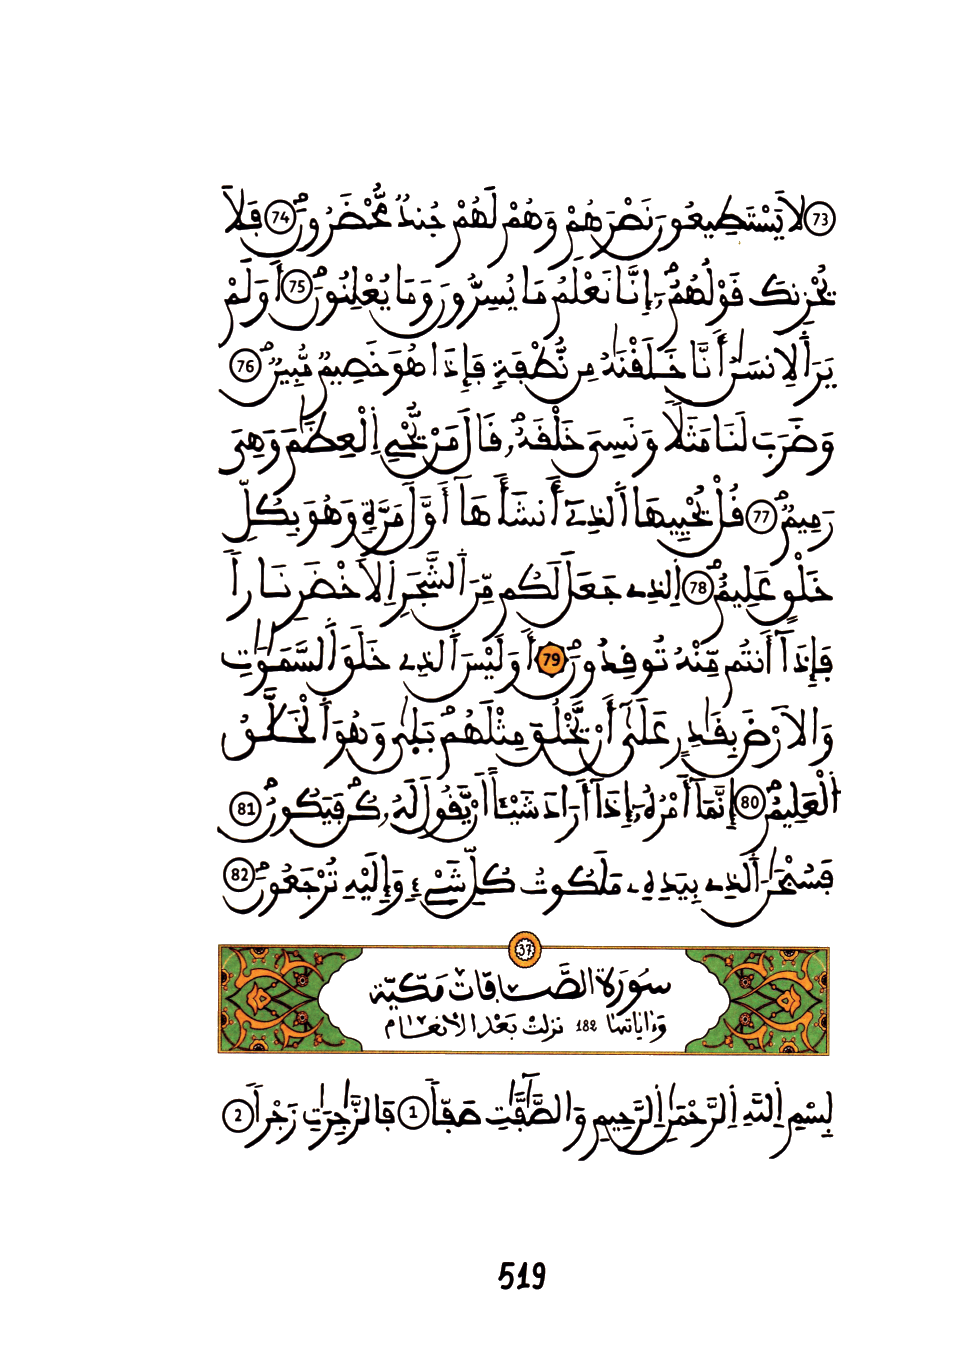 73 لَا يَسْتَطِيعُونَ نَصْرَهُمْ وَهُمْ لَهُمْ جُندٌ مُّحْضَرُونَ 74 فَلَا
يُحْزِنكَ قَوْلُهُمُ إِنَّا نَعْلَمُ مَا يُسِرُّونَ وَمَا يُعْلِنُونَ 75 أَوَلَمْ
يَرَ أَلِانسَٰنُ أَنَّا خَلَقْنَٰهُ مِن نُّطْفَةٍ فَإِذَا هُوَ خَصِيمٌ مُّبِينٌ 76
وَضَرَبَ لَنَا مَثَلًا وَنَسِيَ خَلْقَهُ, قَالَ مَنْ يُّحْيِ اِلْعِظَٰمَ وَهِيَ
رَمِيمٌ 77 قُلْ يُحْيِيهَا أَلذِےٓ أَنشَأَهَآ أَوَّلَ مَرَّةٍ وَهُوَ بِكُلِّ
خَلْقٍ عَلِيمٌ 78 اِلذِے جَعَلَ لَكُم مِّنَ أَلشَّجَرِ اِلَاخْضَرِ نَاراً
فَإِذَآ أَنتُم مِّنْهُ تُوقِدُونَ 79 أَوَلَيْسَ أَلذِے خَلَقَ أَلسَّمَٰوَٰتِ
وَالَارْضَ بِقَٰدِرٍ عَلَىٰٓ أَنْ يَّخْلُقَ مِثْلَهُمْ بَلَىٰ وَهُوَ أَلْخَلَّٰقُ
أَلْعَلِيمُ 80 إِنَّمَآ أَمْرُهُ, إِذَآ أَرَادَ شَيْـًٔا أَنْ يَّقُولَ لَهُ, كُن فَيَكُونُ 81
فَسُبْحَٰنَ أَلذِے بِيَدِهِۦ مَلَكُوتُ كُلِّ شَےْءٍ وَإِلَيْهِ تُرْجَعُونَ 82
37
سُورَة الصَّافَّات مَكِّيَّة
وَءَايَاتهَا 182 نَزلتْ بَعْد الَانعَام
بِسْمِ اِللَّهِ اِلرَّحْمَٰنِ اِلرَّحِيمِ وَالصَّٰٓفَّٰتِ صَفّاً 1 فَالزَّٰجِرَٰتِ زَجْراً 2
519